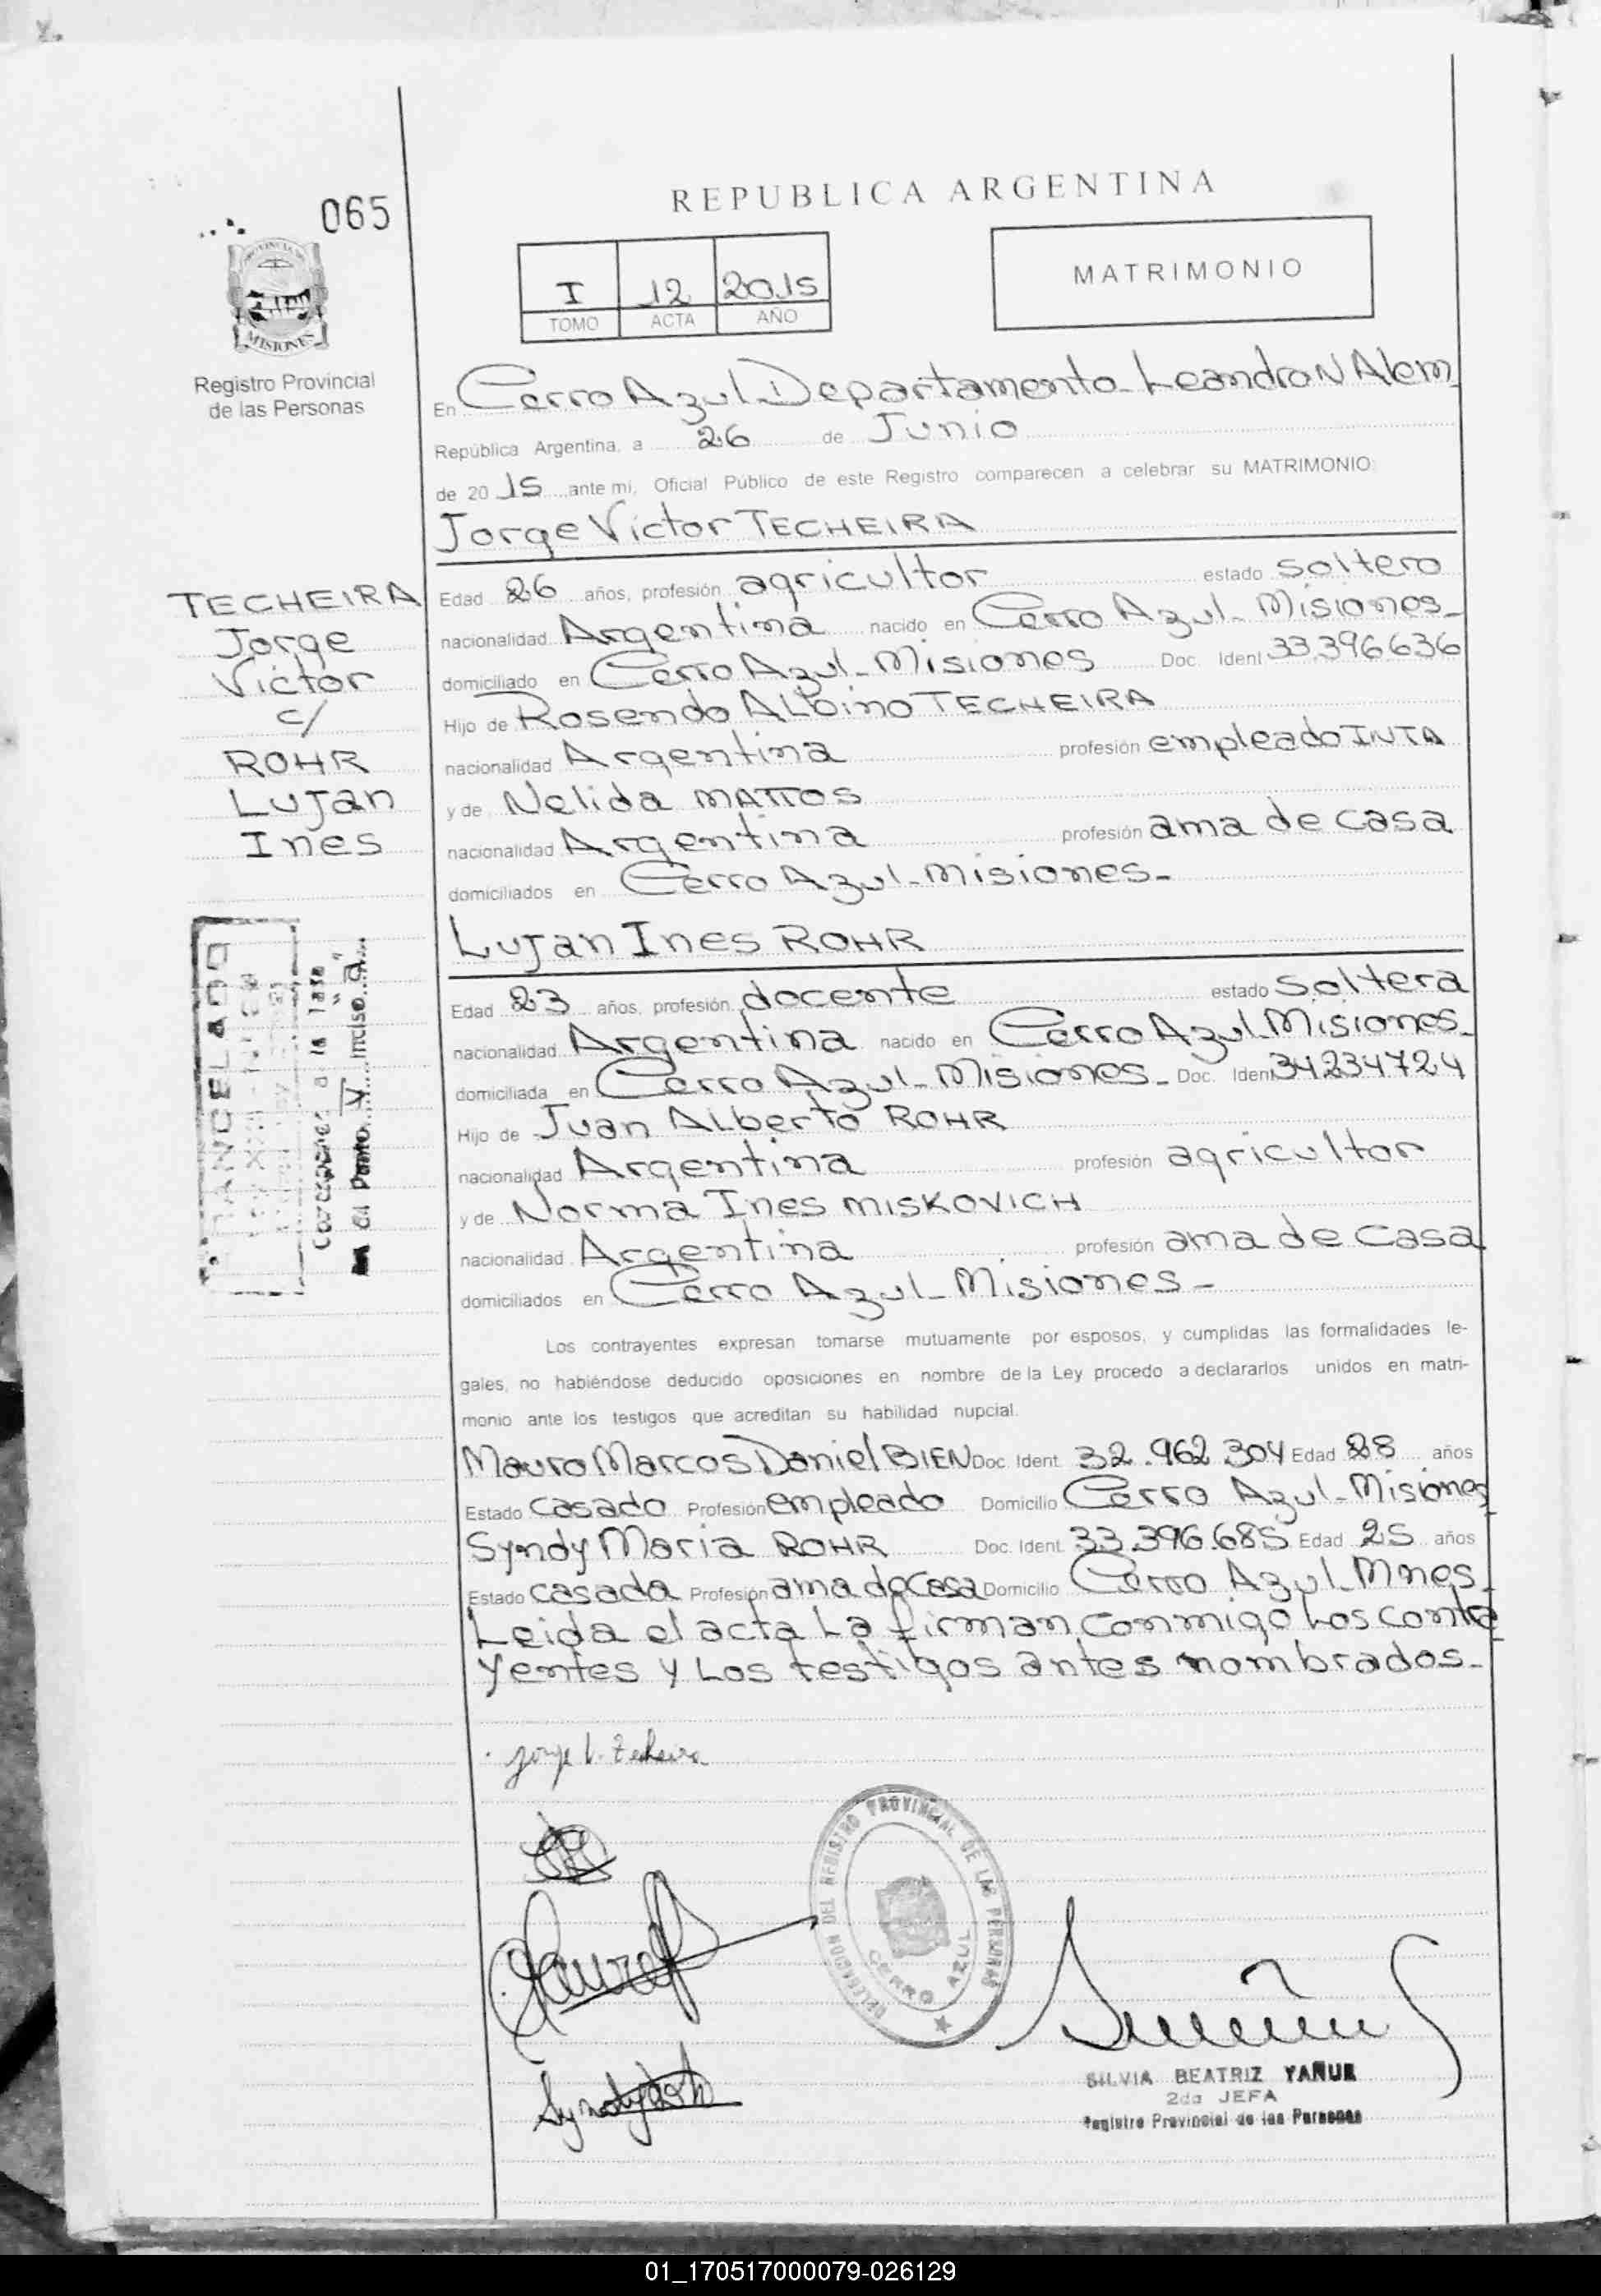 REPUBLICA ARGENTINA
065
PROVINCIA DE
MISIONES
Registro Provincial
de las Personas
I 12 2015
TOMO ACTA AÑO
MATRIMONIO
En Cerro Azul Departamento Leandro N Alem
República Argentina, a 26 de Junio
de 20 15 ante mi, Oficial Público de este Registro comparecen a celebrar su MATRIMONIO:
Jorge Victor TECHEIRA
TECHEIRA
Jorge
Victor
c/
ROHR
Lujan
Ines
Edad 26 años, profesión agricultor estado soltero
nacionalidad Argentina nacido en Cerro Azul - Misiones-
domiciliado en Cerro Azul - Misiones Doc. Ident 33.396.636
Hijo de Rosendo Albino TECHEIRA
nacionalidad Argentina profesión empleado INTA
y de Nelida MATTOS
nacionalidad Argentina profesión ama de casa
domiciliados en Cerro Azul - Misiones-
Lujan Ines ROHR
Edad 23 años, profesión docente estado Soltera
nacionalidad Argentina nacido en Cerro Azul Misiones-
domiciliada en Cerro Azul - Misiones - Doc. Ident 34234724
Hijo de Juan Alberto ROHR
nacionalidad Argentina profesión agricultor
y de Norma Ines MISKOVICH
nacionalidad Argentina profesión ama de casa
domiciliados en Cerro Azul - Misiones -
ARANCELADO
Corresponde a la Tasa
Punto V inciso "a"
Los contrayentes expresan tomarse mutuamente por esposos, y cumplidas las formalidades le-
gales, no habiéndose deducido oposiciones en nombre de la Ley procedo a declararlos unidos en matri-
monio ante los testigos que acreditan su habilidad nupcial.
Mauro Marcos Daniel BIEN Doc. Ident. 32.962.304 Edad 28 años
Estado Casado Profesión empleado Domicilio Cerro Azul - Misiones
Syndy Maria ROHR Doc. Ident. 33.396.685 Edad 25 años
Estado Casada Profesión ama de Casa Domicilio Cerro Azul - Mnes-
Leida el acta la firman conmigo los contra
yentes y los testigos antes nombrados-
Jorge V. Techeira
DELEGACION DEL REGISTRO PROVINCIAL DE LAS PERSONAS
CERRO AZUL
SILVIA BEATRIZ YAÑUK
2da JEFA
Registro Provincial de las Personas
01_170517000079-026129